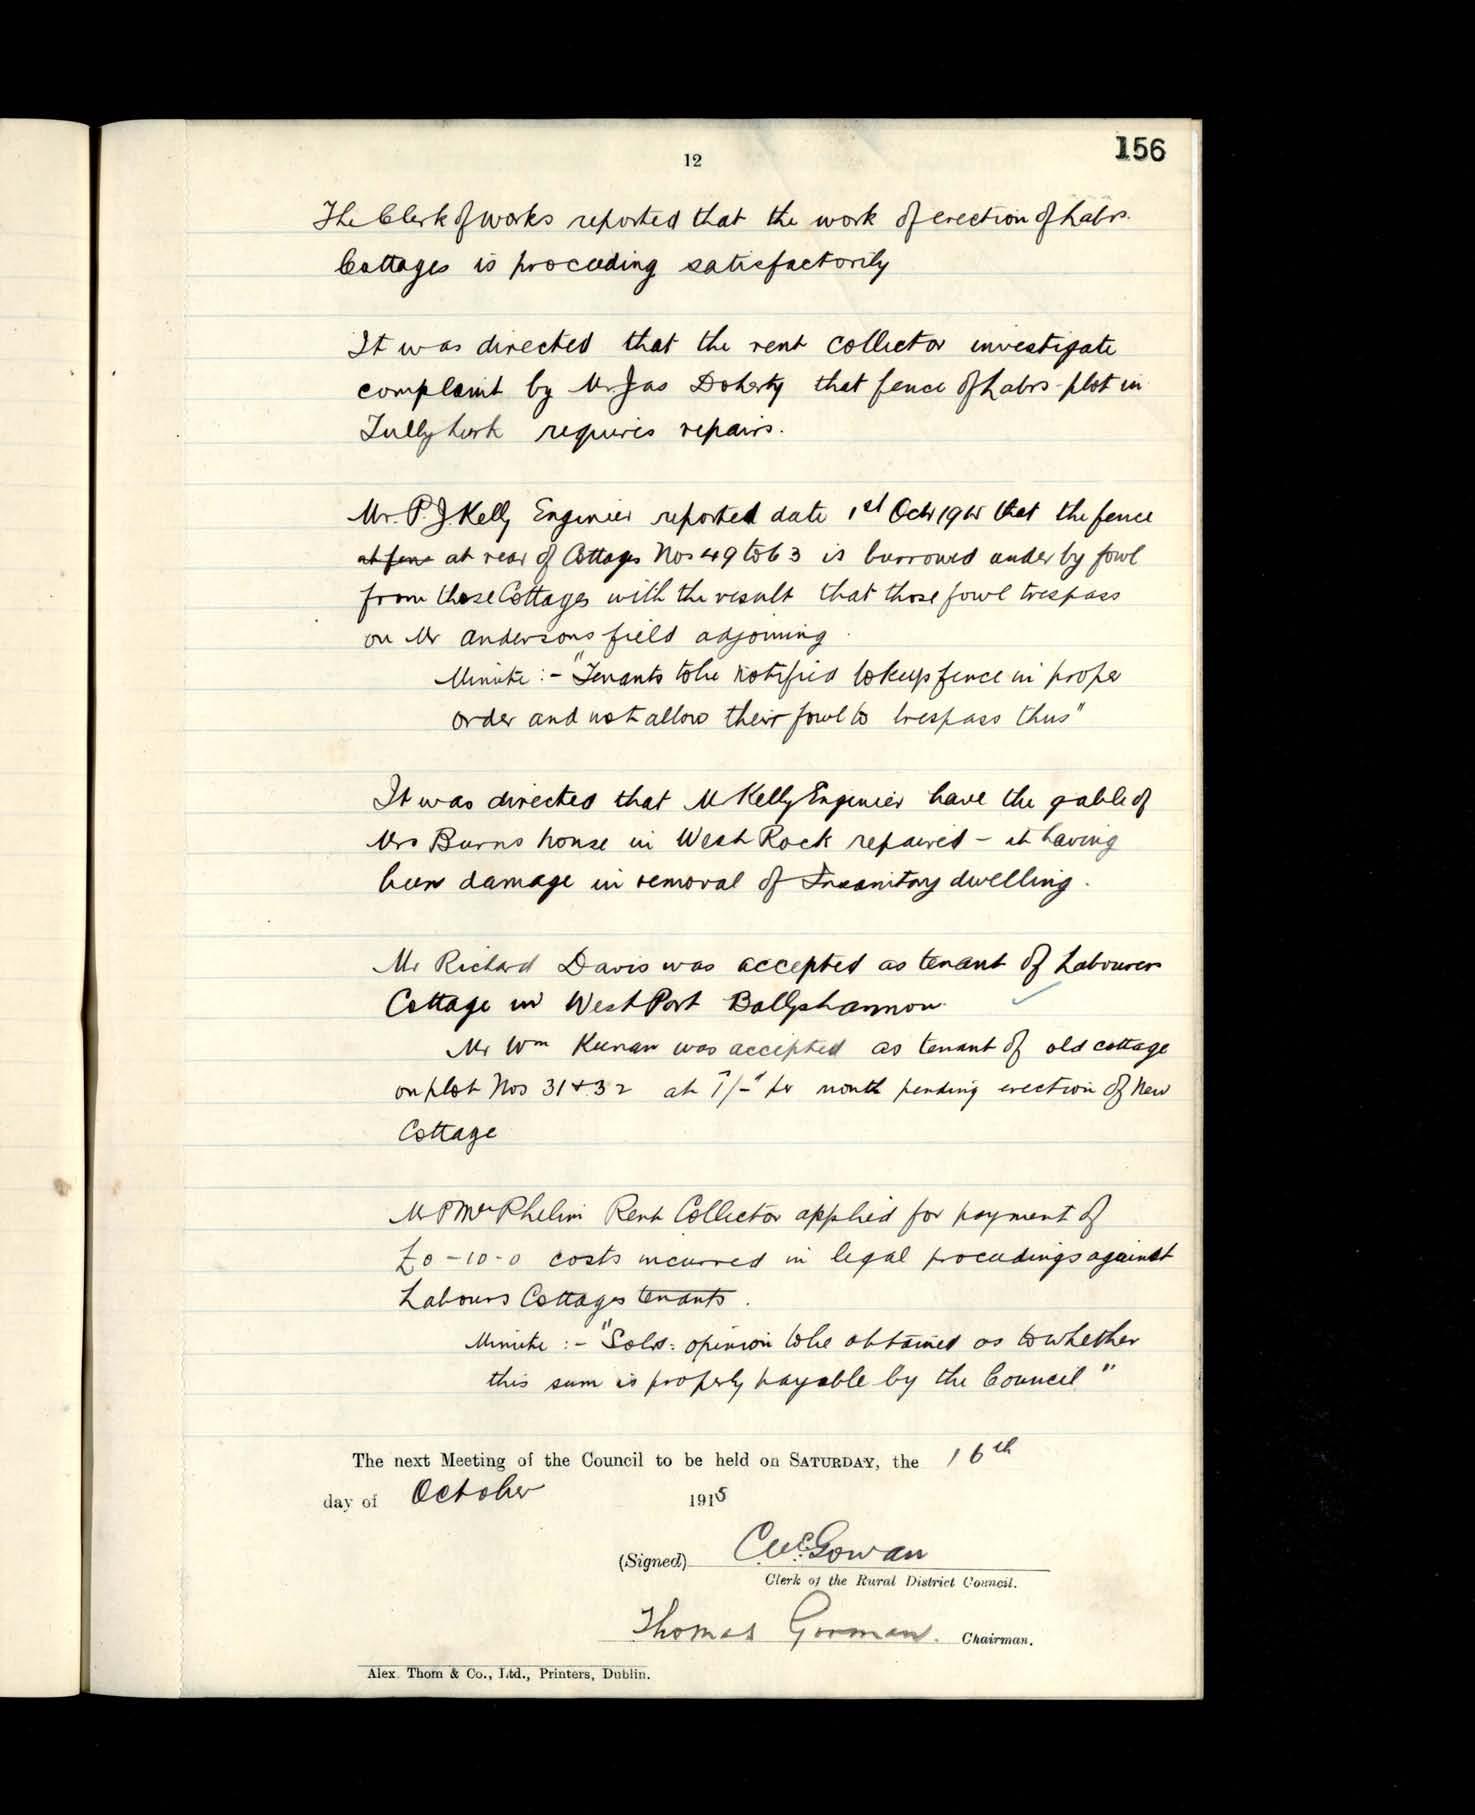 12
156
The Clerk of works reported that the work of erection of Labrs.
Cottages is proceeding satisfactorily
It was directed that the rent collector investigate
complaint by Mr. Jas Doherty that fence of Labrs plot in
Tullyhork requires repairs.
Mr. P. J. Kelly Engineer reported date 1st Octr 1915 that the fence
at fence at rear of Cottages Nos 49 to 63 is burrowed under by fowl
from these Cottages with the result that those fowl trespass
on Mr Andersons field adjoining.
Minute :- "Tenants to be notified to keep fence in proper
order and not allow their fowl to trespass thus"
It was directed that Mr Kelly Engineer have the gable of
Mrs Burns house in West Rock repaired - it having
been damage in removal of Insanitary dwelling.
Mr Richard Davis was accepted as tenant of Labourers
Cottage in West Port Ballyshannon.
Mr Wm Keenan was accepted as tenant of old cottage
on plot Nos 31 & 32 at 1/- per month pending erection of New
Cottage
Mr P McPhelim Rent Collector applied for payment of
£0-10-0 costs incurred in legal proceedings against
Labours Cottages tenants.
Minute :- "Solrs: opinion to be obtained as to whether
this sum is properly payable by the Council"
The next Meeting of the Council to be held on SATURDAY, the 16th
day of October 1915
(Signed) C McGowan
Clerk of the Rural District Council.
Thomas Gorman. Chairman.
Alex. Thom & Co., Ltd., Printers, Dublin.